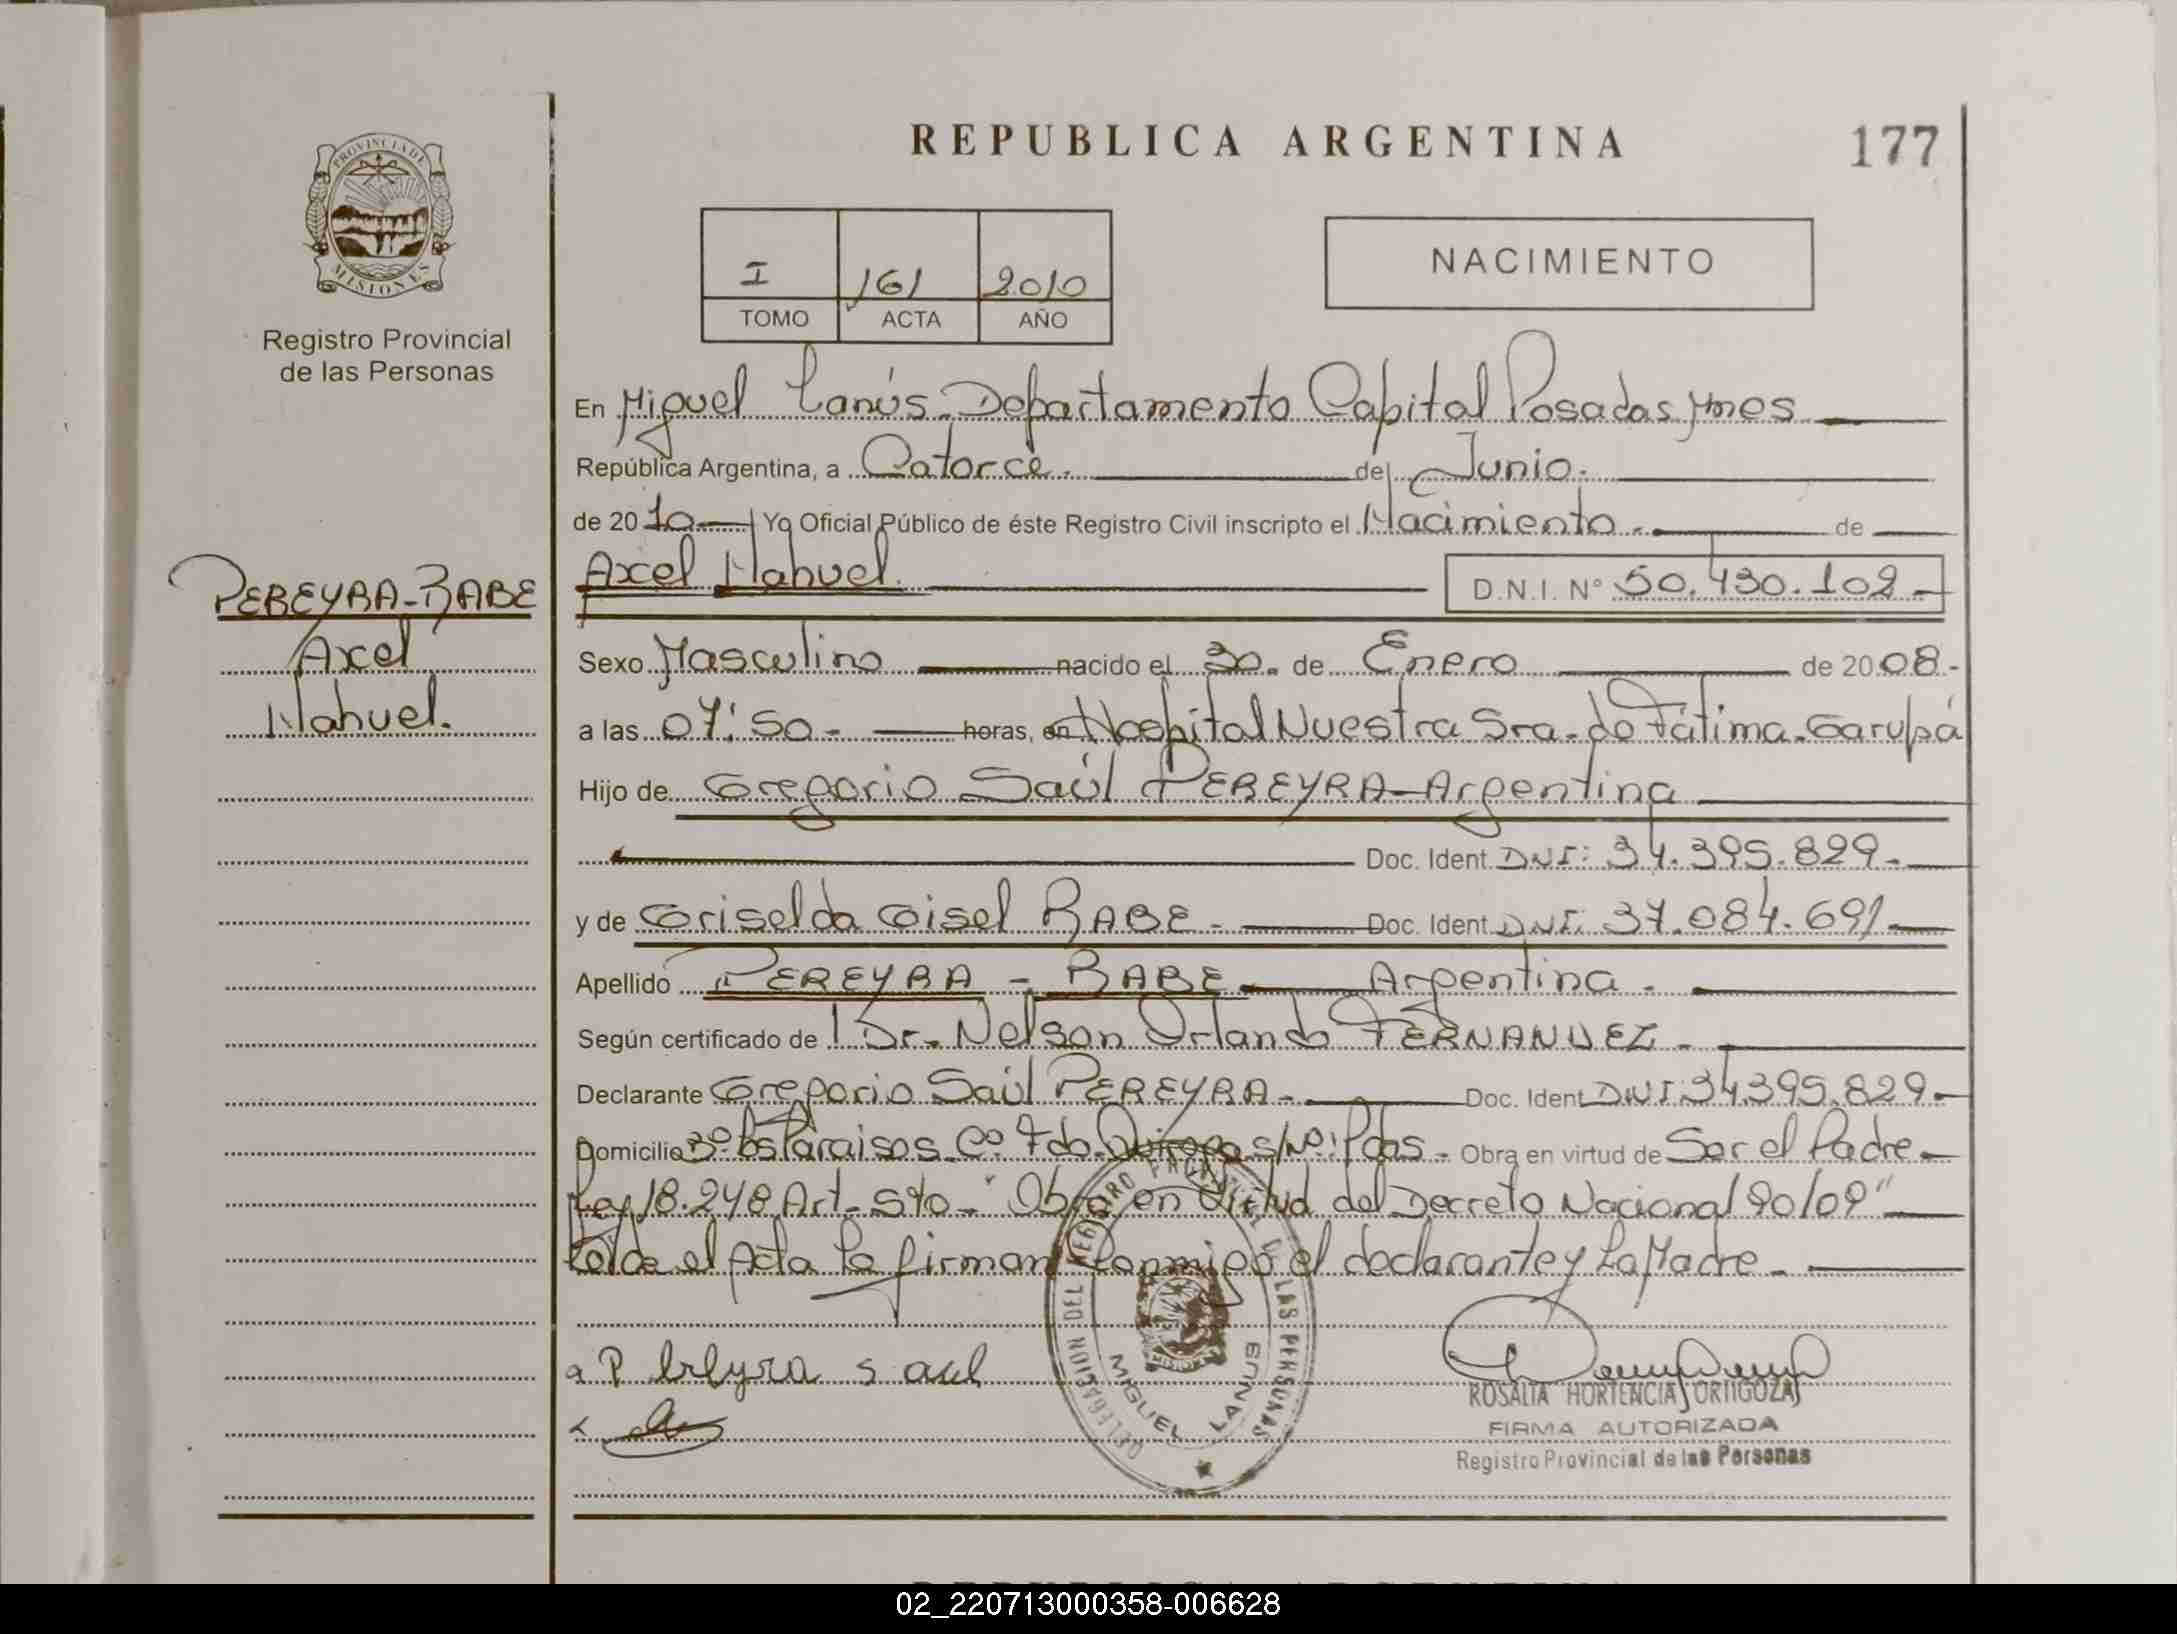 REPUBLICA ARGENTINA
177
PROVINCIA DE MISIONES
Registro Provincial
de las Personas
I 161 2010
TOMO ACTA AÑO
NACIMIENTO
En Miguel Lanús - Departamento Capital Posadas Mnes
República Argentina, a Catorce. de Junio.
de 2010 Yo Oficial Público de éste Registro Civil inscripto el Nacimiento. de
Axel Nahuel. D.N.I. N° 50.430.102-
PEREYRA-BABE
Axel
Nahuel.
Sexo Masculino nacido el 30. de Enero de 2008.-
a las 07:50- horas, en Hospital Nuestra Sra. de Fátima-Garupá
Hijo de Gregorio Saúl PEREYRA-Argentina
Doc. Ident. DNI: 34.395.829-
y de Griselda Gisel BABE- Doc. Ident DNI: 37.084.691
Apellido PEREYRA - BABE Argentina-
Según certificado de Dr. Nelson Orlando FERNANDEZ-
Declarante Gregorio Saúl PEREYRA- Doc. Ident DNI:34.395.829-
Domicilio Bº Los Paraisos Cº Fdo. s/Nº Pdas- Obra en virtud de Ser el Padre-
Ley 18.248 Art. 5to- "Obra en Virtud del Decreto Nacional 90/09"
Leída el Acta la firman Conmigo el declarante y La Madre-
DELEGACION DEL REGISTRO PROVINCIAL DE LAS PERSONAS
MIGUEL LANUS
ROSALIA HORTENCIA ORTIGOZA
FIRMA AUTORIZADA
Registro Provincial de las Personas
02_220713000358-006628